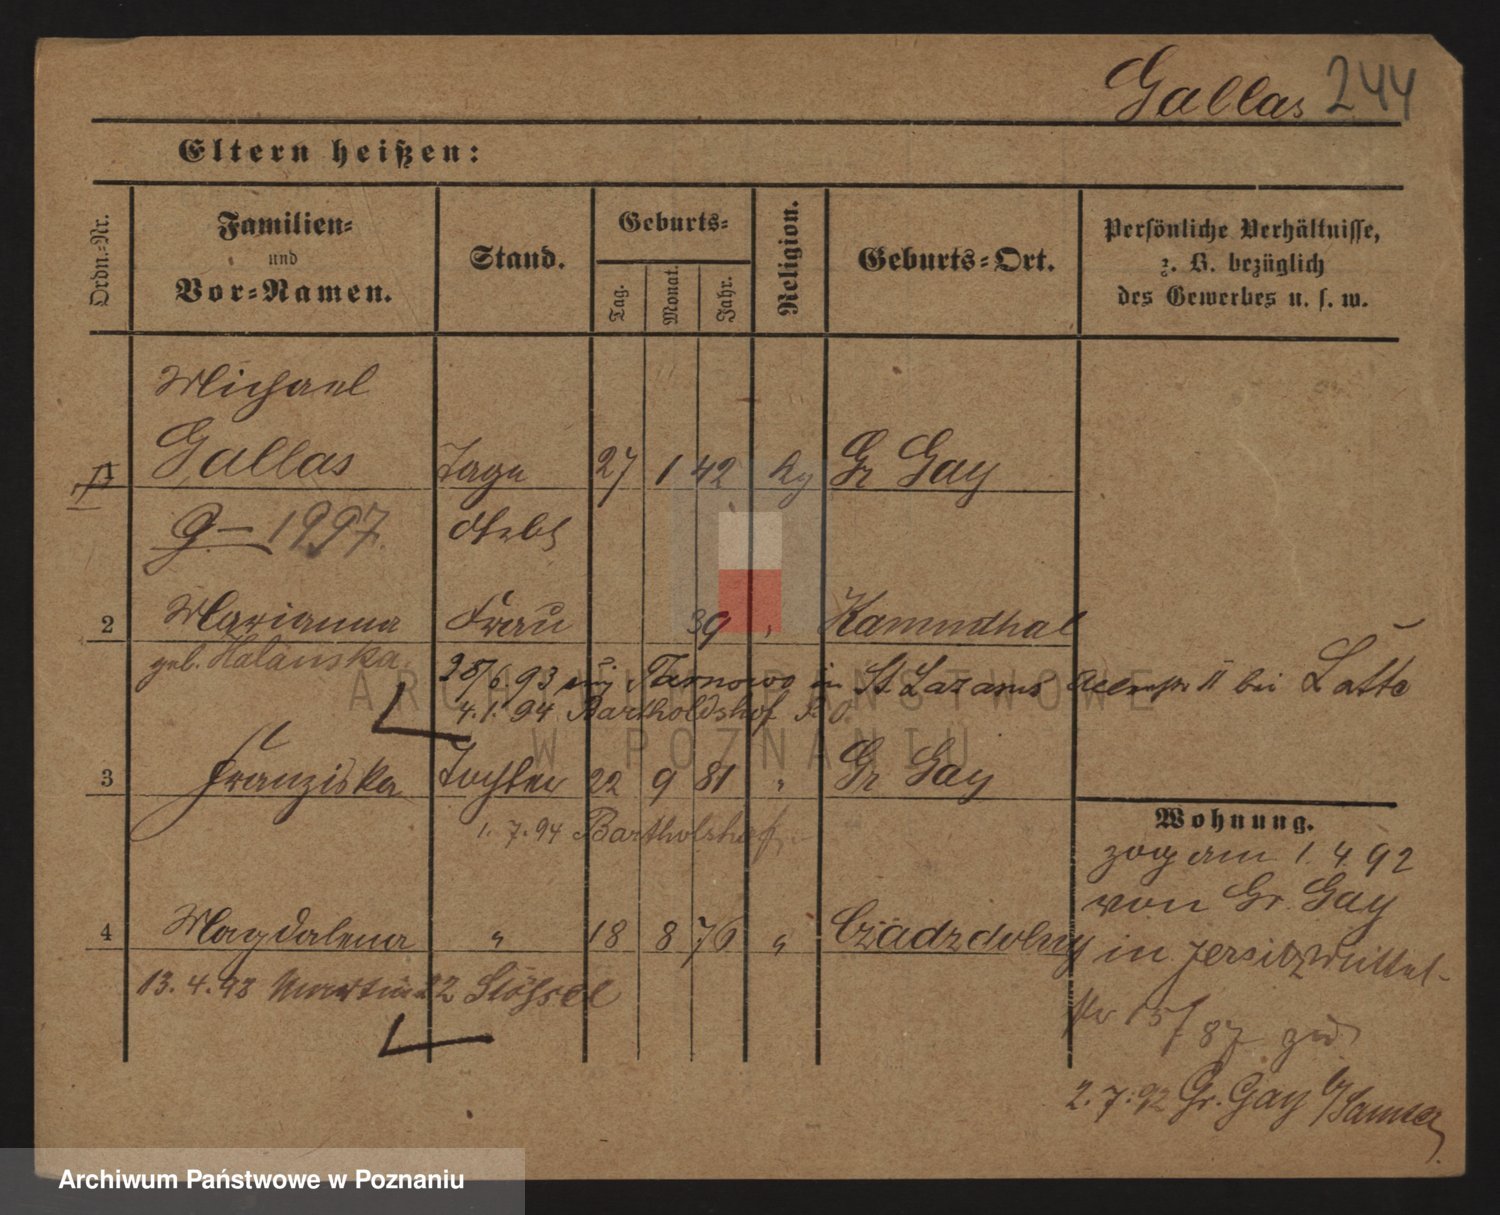 Gallas 244
Eltern heißen:
Ordn.-Nr.
Familien-
und
Vor-Namen.
Stand.
Geburts-
Tag.
Monat.
Jahr.
Religion.
Geburts-Ort.
Persönliche Verhältnisse,
z. B. bezüglich
des Gewerbes u. s. w.
Michael
1 Gallas Tage 27 1 42 Kg Gr Gay
G – 1997.
2 Marianna Frau 39 " Kammthal
geb. Halanska
28/6.93 Tarnowo in St. Lazarus II bei Latte
4.1.94 Bartholdshof
3 Franziska Tochter 22 9 81 " Gr Gay
1.7.94 Bartholshof
4 Magdalena " 18 8 76 "
13.4.93 Martin 22 Stössel
Wohnung.
zog am 1.4.92
von Gr. Gay
in Jersitz Mittel-
str 15/
87
2.7.92 Gr. Gay b/Samter
ARCHIWUM PAŃSTWOWE
W POZNANIU
Archiwum Państwowe w Poznaniu